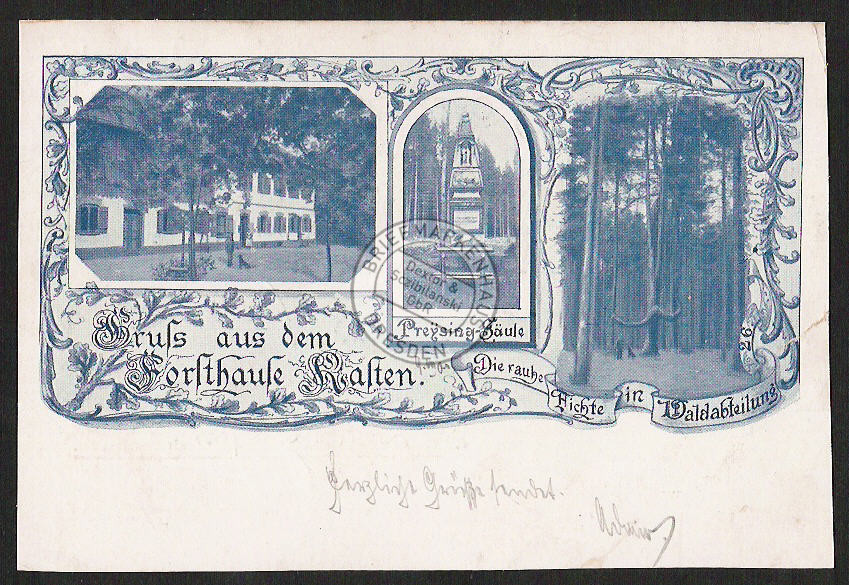 Gruss aus dem
Forsthause Kasten.
Preysing-Säule
Die rauhe Fichte in Waldabteilung
26.
BRIEFMARKENHAUS
Dextar &
Sczibilanski
GbR
DRESDEN
Herzliche Grüße sendet.